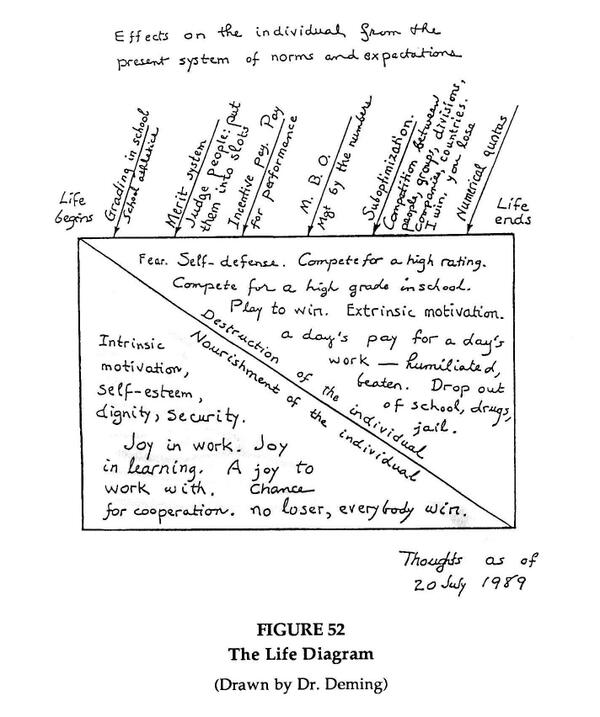 Effects on the individual from the
present system of norms and expectations
Life
begins
Grading in school
School athletics
Merit system
Judge people: put
them into slots
Incentive pay. Pay
for performance
M. B. O.
Mgt by the numbers
Suboptimization.
Competition between
people, groups, divisions,
companies, countries.
I win, you lose
Numerical quotas
Life
ends
Fear. Self-defense. Compete for a high rating.
Compete for a high grade in school.
Play to win. Extrinsic motivation.
a day's pay for a day's
work — humiliated,
beaten. Drop out
of school, drugs,
jail.
Destruction of the individual
Nourishment of the individual
Intrinsic
motivation,
self-esteem,
dignity, security.
Joy in work. Joy
in learning. A joy to
work with. Chance
for cooperation. no loser, everybody win.
Thoughts as of
20 July 1989
FIGURE 52
The Life Diagram
(Drawn by Dr. Deming)